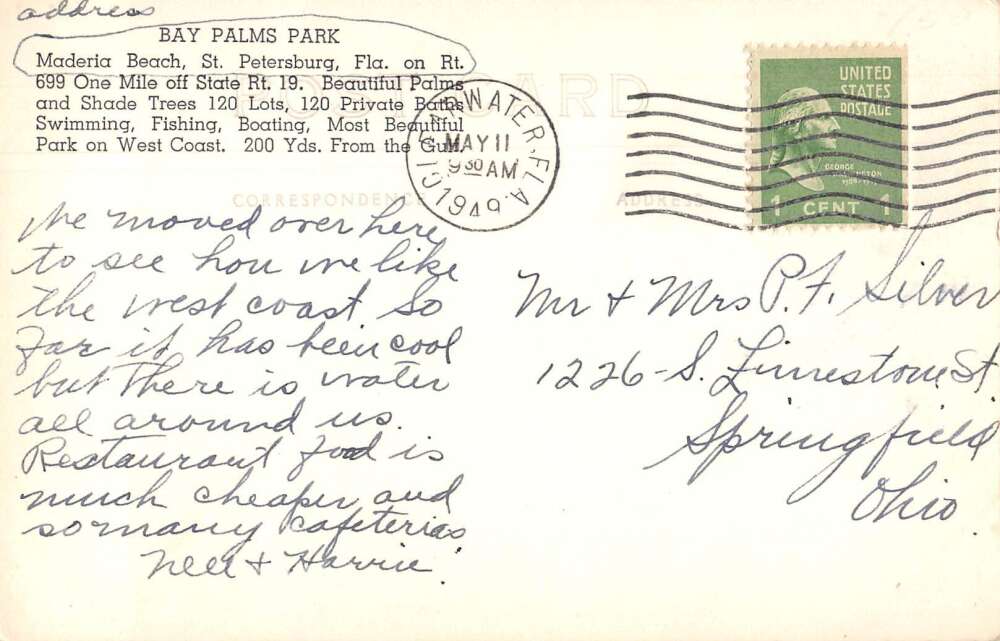 address
BAY PALMS PARK
Maderia Beach, St. Petersburg, Fla. on Rt.
699 One Mile off State Rt. 19. Beautiful Palms
and Shade Trees 120 Lots, 120 Private Baths
Swimming, Fishing, Boating, Most Beautiful
Park on West Coast. 200 Yds. From the Gulf.
POST CARD
CLEARWATER, FLA.
MAY 11
9 30 AM
1949
UNITED
STATES
POSTAGE
GEORGE
WASHINGTON
1 CENT 1
CORRESPONDENCE
ADDRESS
We moved over here
to see how we like
the west coast So
far it has been cool
but there is water
all around us.
Restaurant food is
much cheaper and
so many cafeterias
Nell + Harrie.
Mr + Mrs P. F. Silver
1226-S. Limestone St
Springfield
Ohio